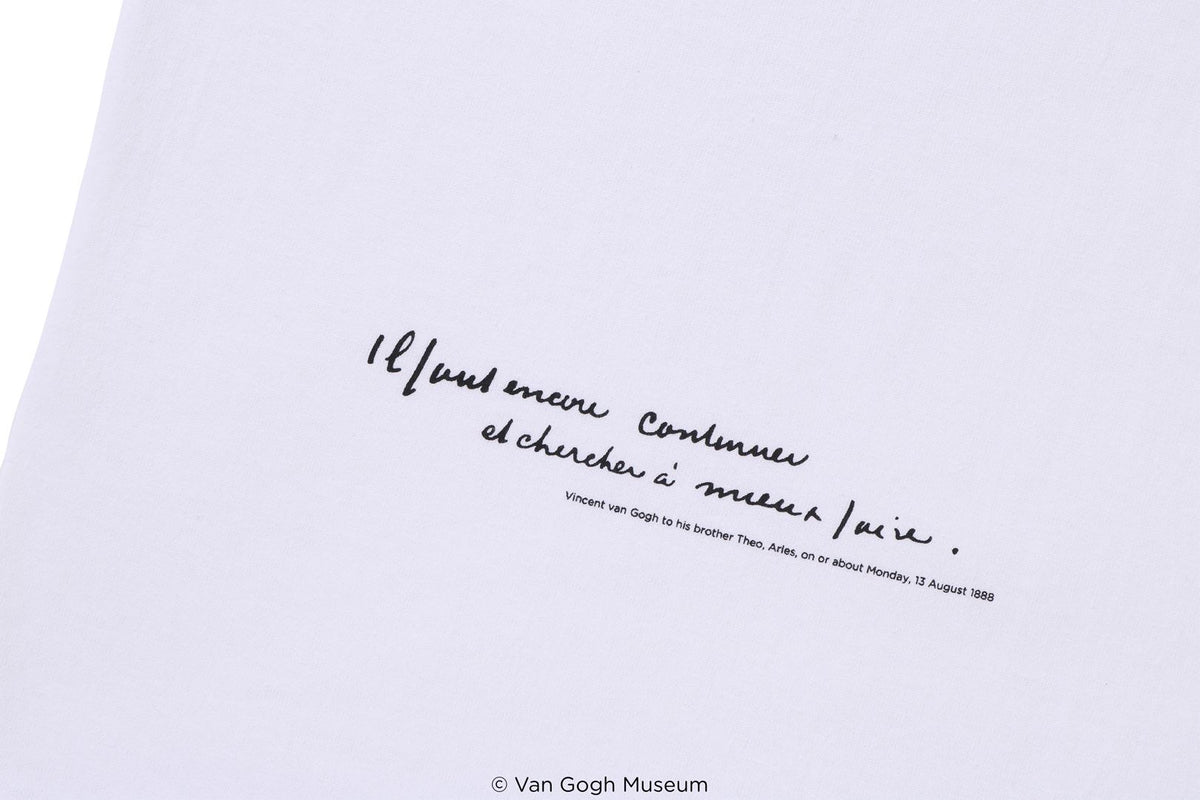 Il faut encore continuer
et chercher à mieux faire.
Vincent van Gogh to his brother Theo, Arles, on or about Monday, 13 August 1888
© Van Gogh Museum